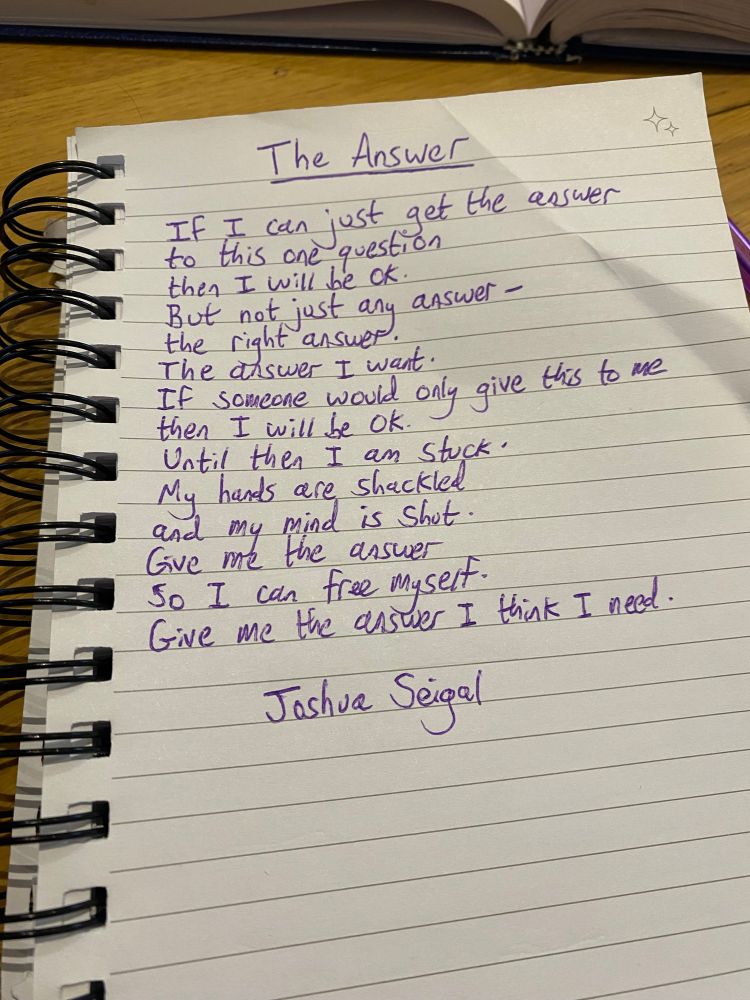 The Answer
If I can just get the answer
to this one question
then I will be OK.
But not just any answer –
the right answer.
The answer I want.
If someone would only give this to me
then I will be OK.
Until then I am stuck.
My hands are shackled
and my mind is shot.
Give me the answer
So I can free myself.
Give me the answer I think I need.
Joshua Seigal